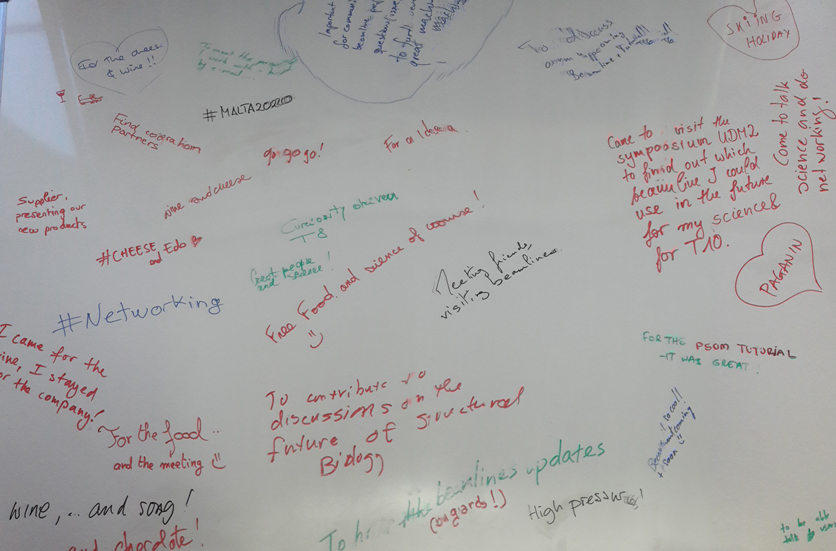 For the cheese
& wine!!
Important
for communi
beamline people
questions/issues
To find
great
machine
To discuss
upcoming
Beamline
SKIING
HOLIDAY
#MALTA2020
Find cooperation
partners
go go go!
For a Idea
Come to visit the
symposium UDM2
to find out which
beamline I could
use in the future
for my science
for T10.
Come to talk
science and do
networking!
Supplier,
presenting our
new products
wine and cheese
#CHEESE
and Edo
Curiosity driven
Great people
and science!
Free Food and science of course!
Meeting friends,
visiting beamlines.
PAGANIN
#Networking
I came for the
wine, I stayed
for the company!
FOR THE PSOM TUTORIAL
- IT WAS GREAT!
For the food...
and the meeting
To contribute to
discussions on the
future of Structural
Biology
so cool!!
soon
wine,... and song!
and chocolate!
To the beamlines updates
High pressure!
to be able